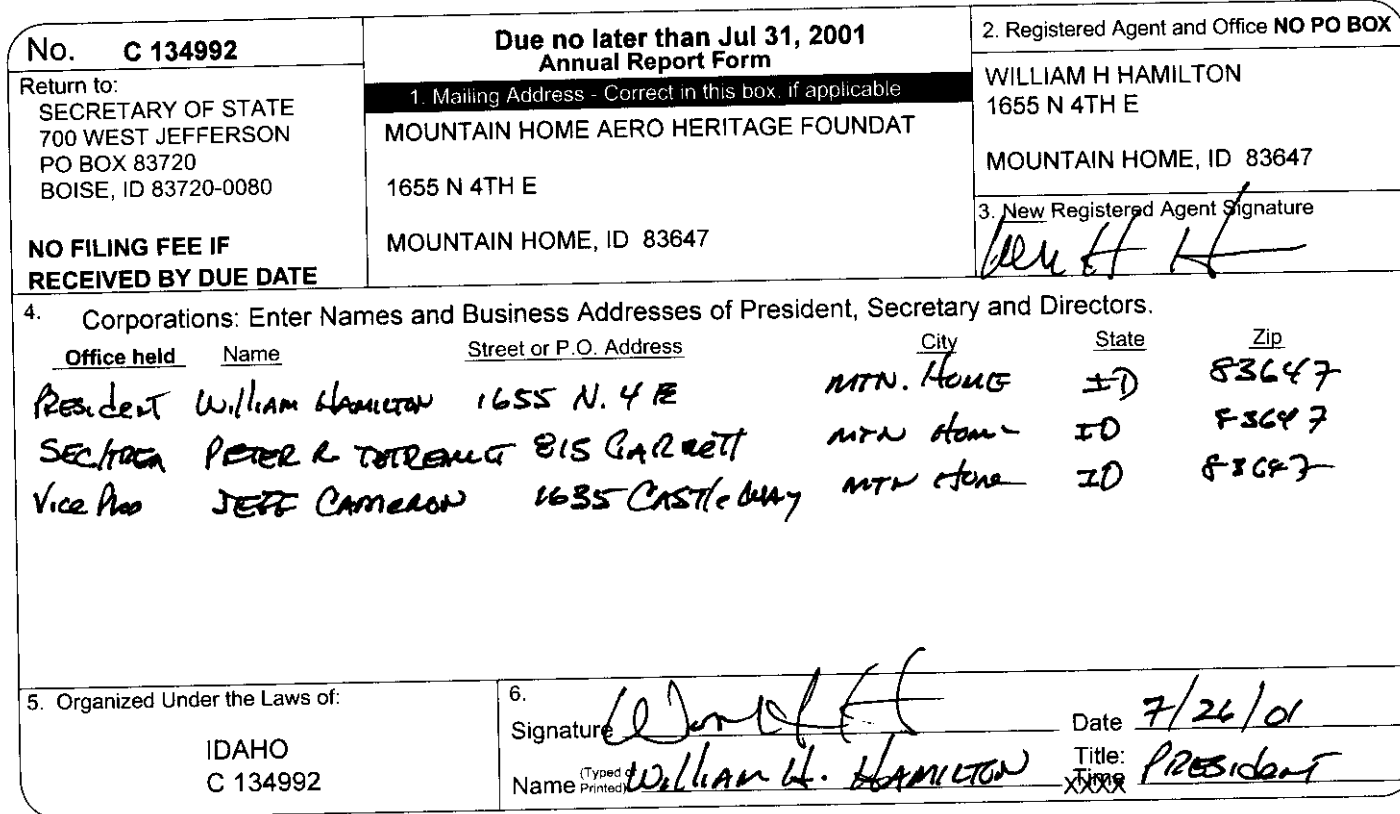 No. C 134992
Return to:
SECRETARY OF STATE
700 WEST JEFFERSON
PO BOX 83720
BOISE, ID 83720-0080
NO FILING FEE IF
RECEIVED BY DUE DATE
Due no later than Jul 31, 2001
Annual Report Form
1. Mailing Address - Correct in this box, if applicable
MOUNTAIN HOME AERO HERITAGE FOUNDAT
1655 N 4TH E
MOUNTAIN HOME, ID 83647
2. Registered Agent and Office NO PO BOX
WILLIAM H HAMILTON
1655 N 4TH E
MOUNTAIN HOME, ID 83647
3. New Registered Agent Signature
4. Corporations: Enter Names and Business Addresses of President, Secretary and Directors.
Office held Name Street or P.O. Address City State Zip
President William Hamilton 1655 N. 4 E MTN. Home ID 83647
PETER R 815 GARRETT MTN Home ID 83647
Vice Pres JEFF CAMERON 1635 CASTle WAy MTN Home ID 83647
5. Organized Under the Laws of:
IDAHO
C 134992
6.
Signature Date 7/26/01
Name (Typed or Printed) William H. HAMILTON Title: PRESident